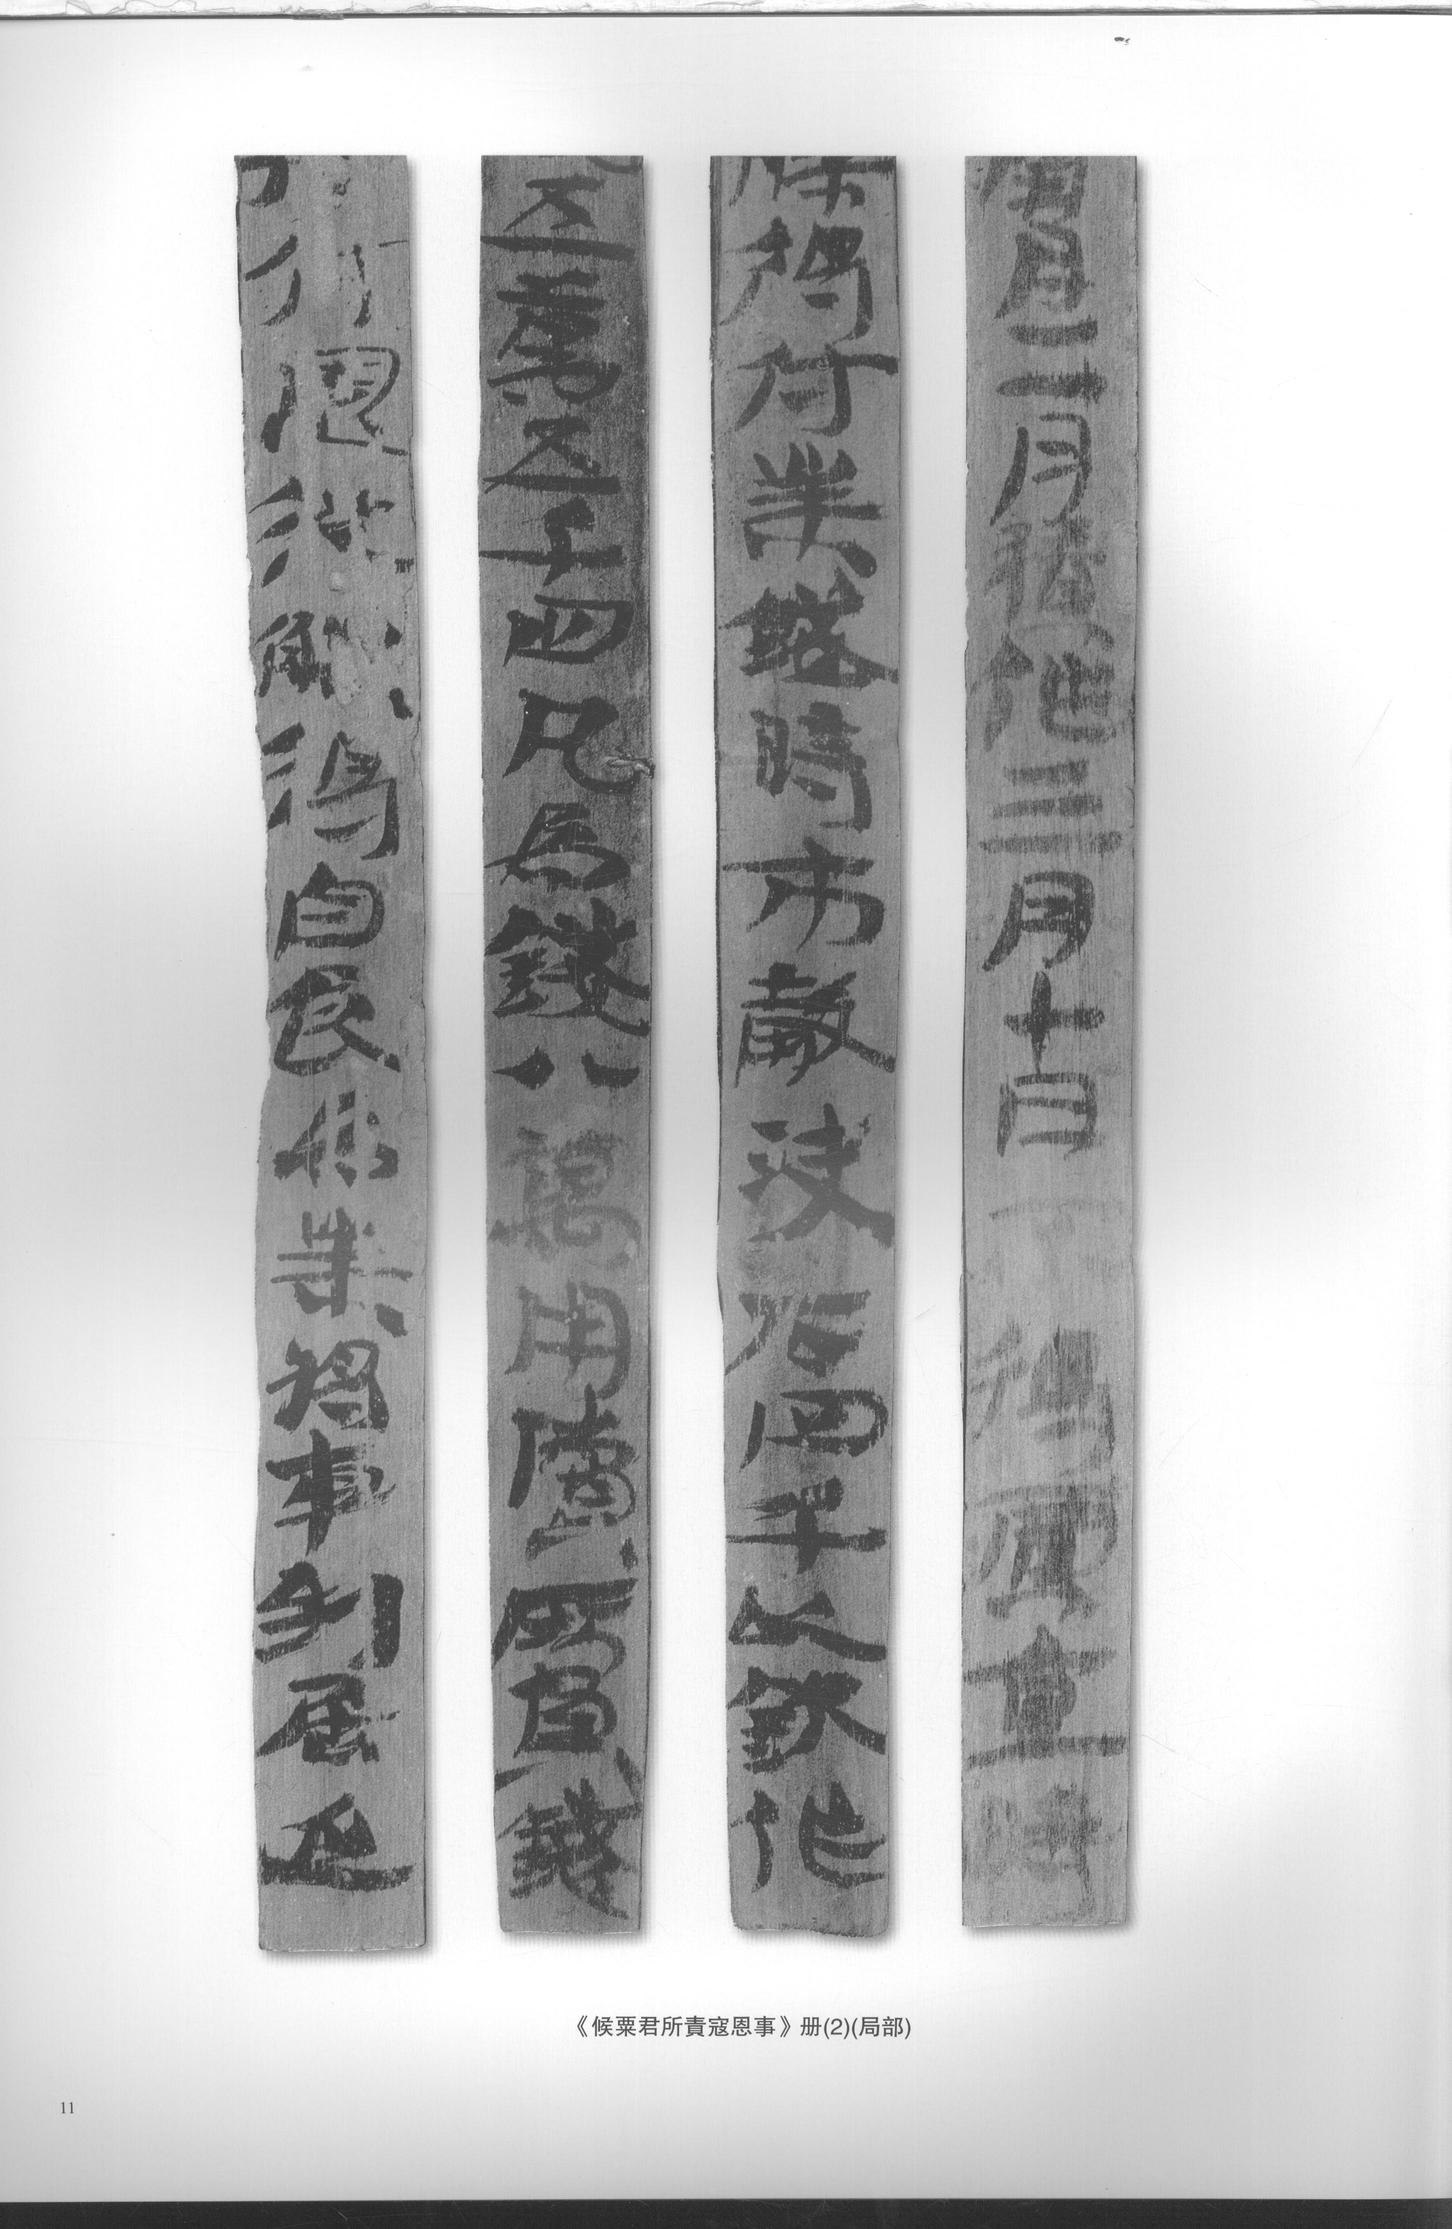 閏月二月積作三月十日不得賈直時
觻得付業錢時市穀決石四千以欽作
五萬五千四凡為錢八萬用償所負錢
付恩從觻得自食為業將車到居延
《候粟君所責寇恩事》册(2)(局部)
11